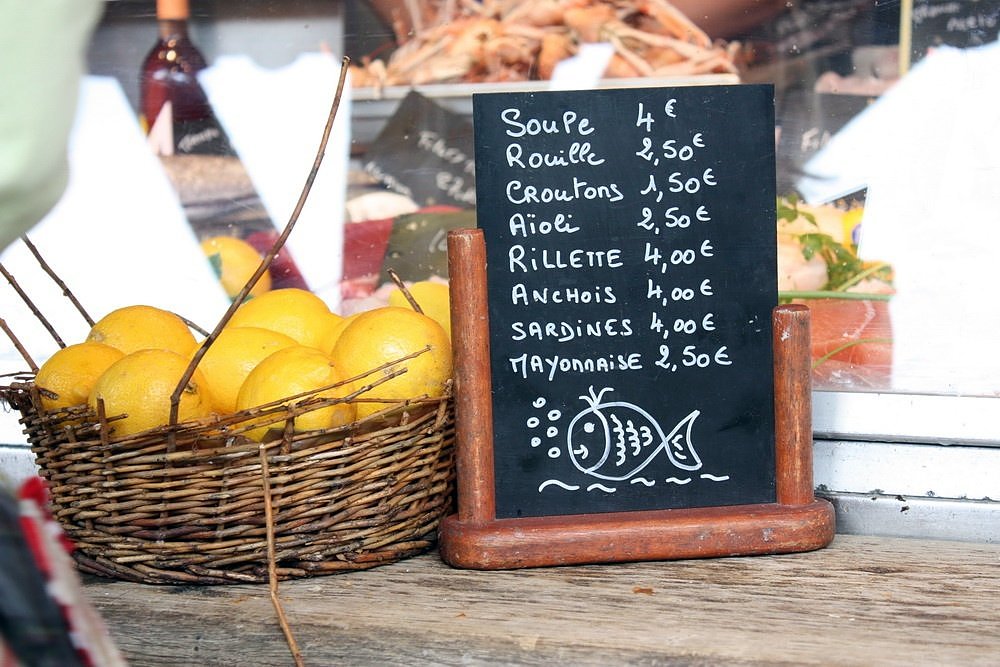 Soupe 4 €
Rouille 2,50€
Croutons 1,50€
Aïoli 2,50€
RiLLETTE 4,00€
ANCHOiS 4,00€
SARDiNES 4,00€
MAYONNAiSE 2,50€